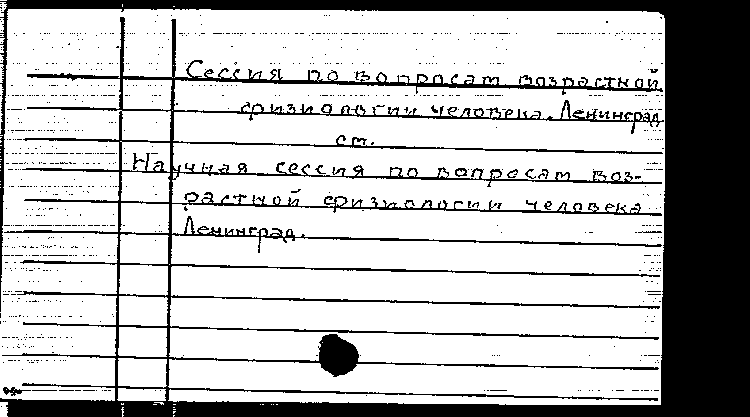 Сессия по вопросам возрастной
физиологии человека. Ленинград
см.
Научная сессия по вопросам воз-
растной физиологии человека
Ленинград.